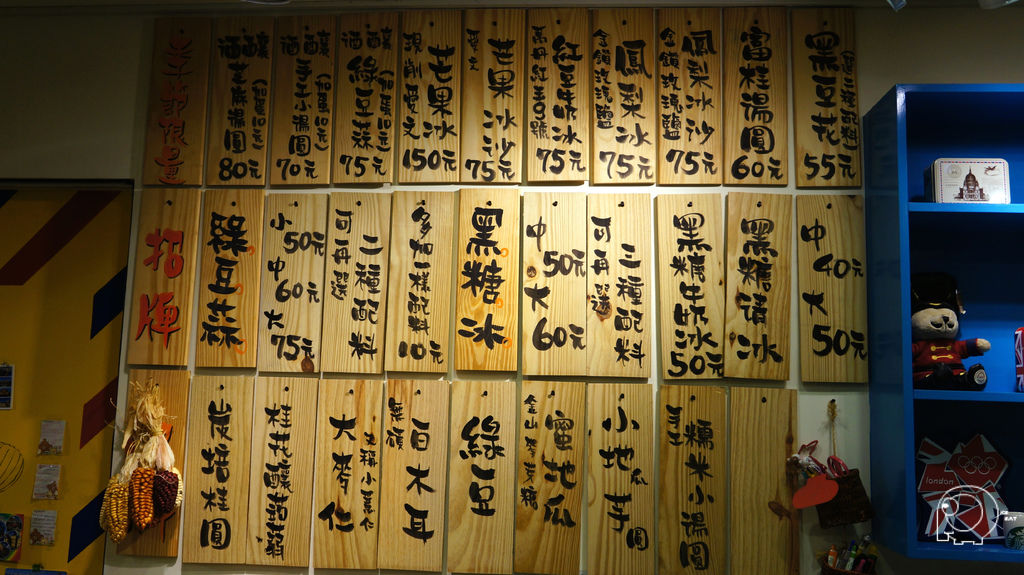 季節限量
酒釀芝麻湯圓
(加蛋10元)
80元
酒釀手手小湯圓
(加蛋10元)
70元
酒釀綠豆蒜
(加蛋10元)
75元
芒果冰
現削愛文
150元
芒果冰沙
愛文
75元
紅豆牛奶冰
萬丹紅豆9號
75元
鳳梨冰
金鑽玫瑰鹽
75元
鳳梨冰沙
金鑽玫瑰鹽
75元
富桂湯圓
60元
黑豆花
55元
招牌
綠豆蒜
小50元
中60元
大75元
可再選
二種配料
多加一樣配料
10元
黑糖冰
中50元
大60元
可再選
三種配料
黑糖牛奶冰
50元
黑糖清冰
中40元
大50元
炭培桂圓
桂花釀蒟蒻
大麥仁
古稱小薏仁
無硫
白木耳
綠豆
蜜地瓜
金山麥芽糖
小地瓜芋圓
手工
糯米小湯圓
london
EAT